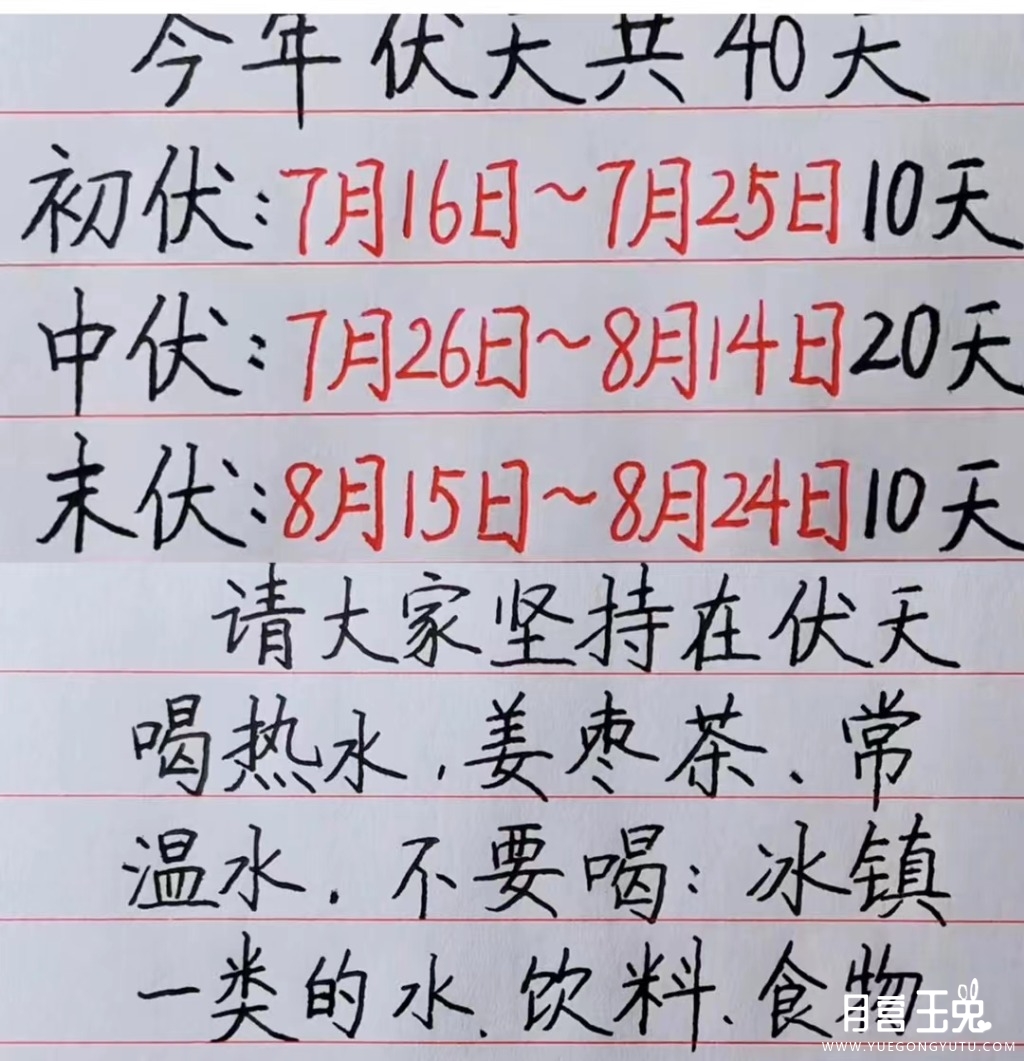 今年伏天共40天
初伏:7月16日~7月25日10天
中伏:7月26日~8月14日20天
末伏:8月15日~8月24日10天
请大家坚持在伏天
喝热水,姜枣茶、常
温水.不要喝:冰镇
一类的水、饮料、食物
月宫玉兔
WWW.YUEGONGYUTU.COM